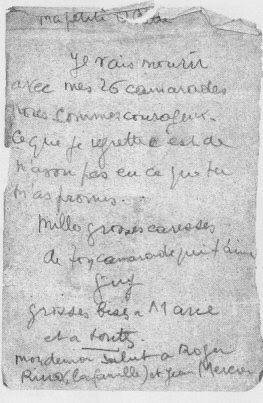 ma petite Odette
Je vais mourir
avec mes 26 camarades
nous sommes courageux.
Ce que je regrette c est de
n avoir pas eu ce que tu
m'as promis.
Mille grosses caresses
de ton camarade qui t'aime
Guy
grosses bises a Marie
et a toutes
mon dernier salut a Roger
(la famille) et Jean Mercier